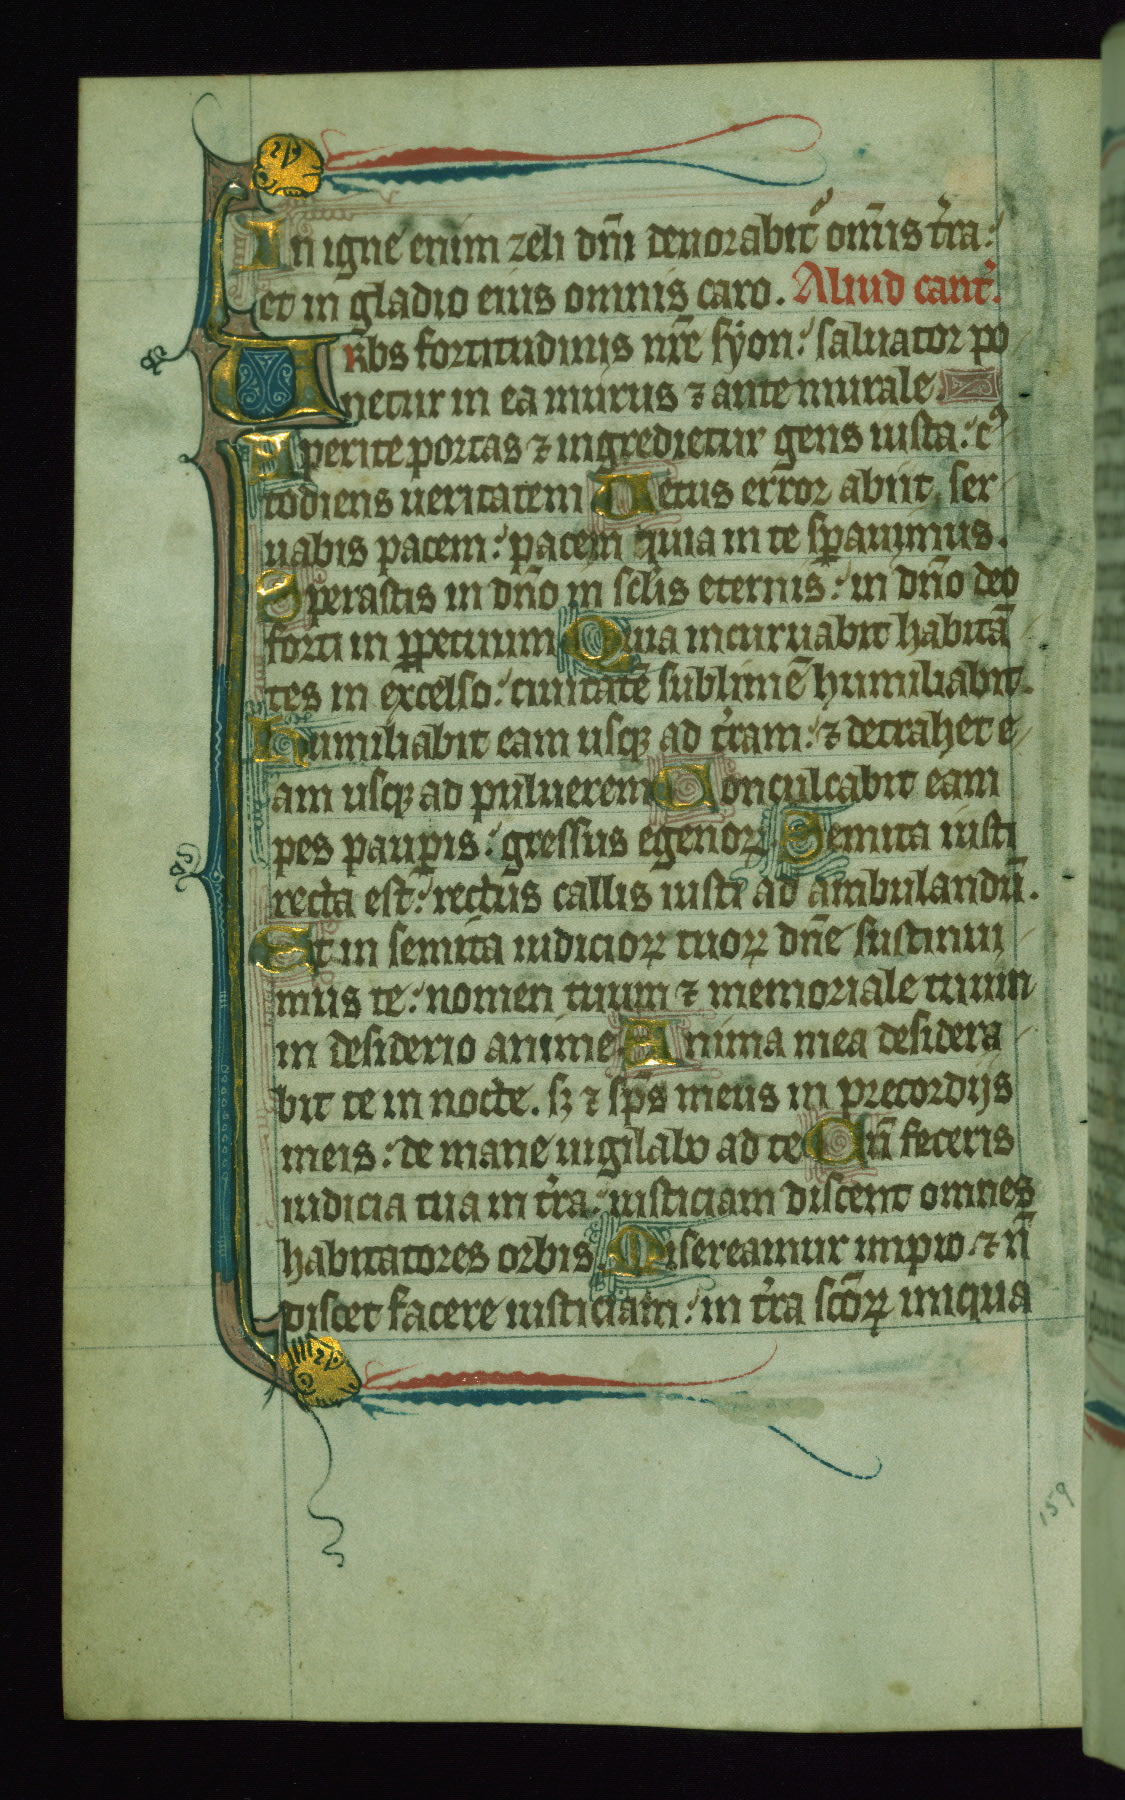 In igne enim zeli dn̄i deuorabit᷑ om̄is tr̓a :
et in gladio eius omnis caro . Aliud cant̓.
Urbs fortitudinis nr̄e syon : saluator po
netur in ea murus ⁊ ante murale .
Aperite portas ⁊ ingredietur gens iusta : c᷒
todiens ueritatem Uetus error abiit ser
uabis pacem : pacem quia in te sꝑauimus .
Sperastis in dn̄o in scl̄is eternis : in dn̄o deo
forti in ꝑpetuum Quia incuruabit habitā
tes in excelso : ciuitatē sublimē humiliabit .
Humiliabit eam usqꝫ ad tr̓am : ⁊ detrahet e
am usqꝫ ad puluerem Conculcabit eam
pes pauꝑis : gressus egenoꝝ Semita iusti
recta est : rectus callis iusti ad ambulandū .
Et in semita iudicioꝝ tuoꝝ dn̄e sustinui
mus te : nomen tuum ⁊ memoriale tuum
in desiderio anime Anima mea desidera
bit te in nocte . sꝫ ⁊ sp̄s meus in precordijs
meis : de mane uigilabo ad te Cū feceris
iudicia tua in tr̓a : iusticiam discent omnes
habitatores orbis . Misereamur impio ⁊ n̄
discet facere iusticiam : in tr̓a scōꝝ iniqua
159